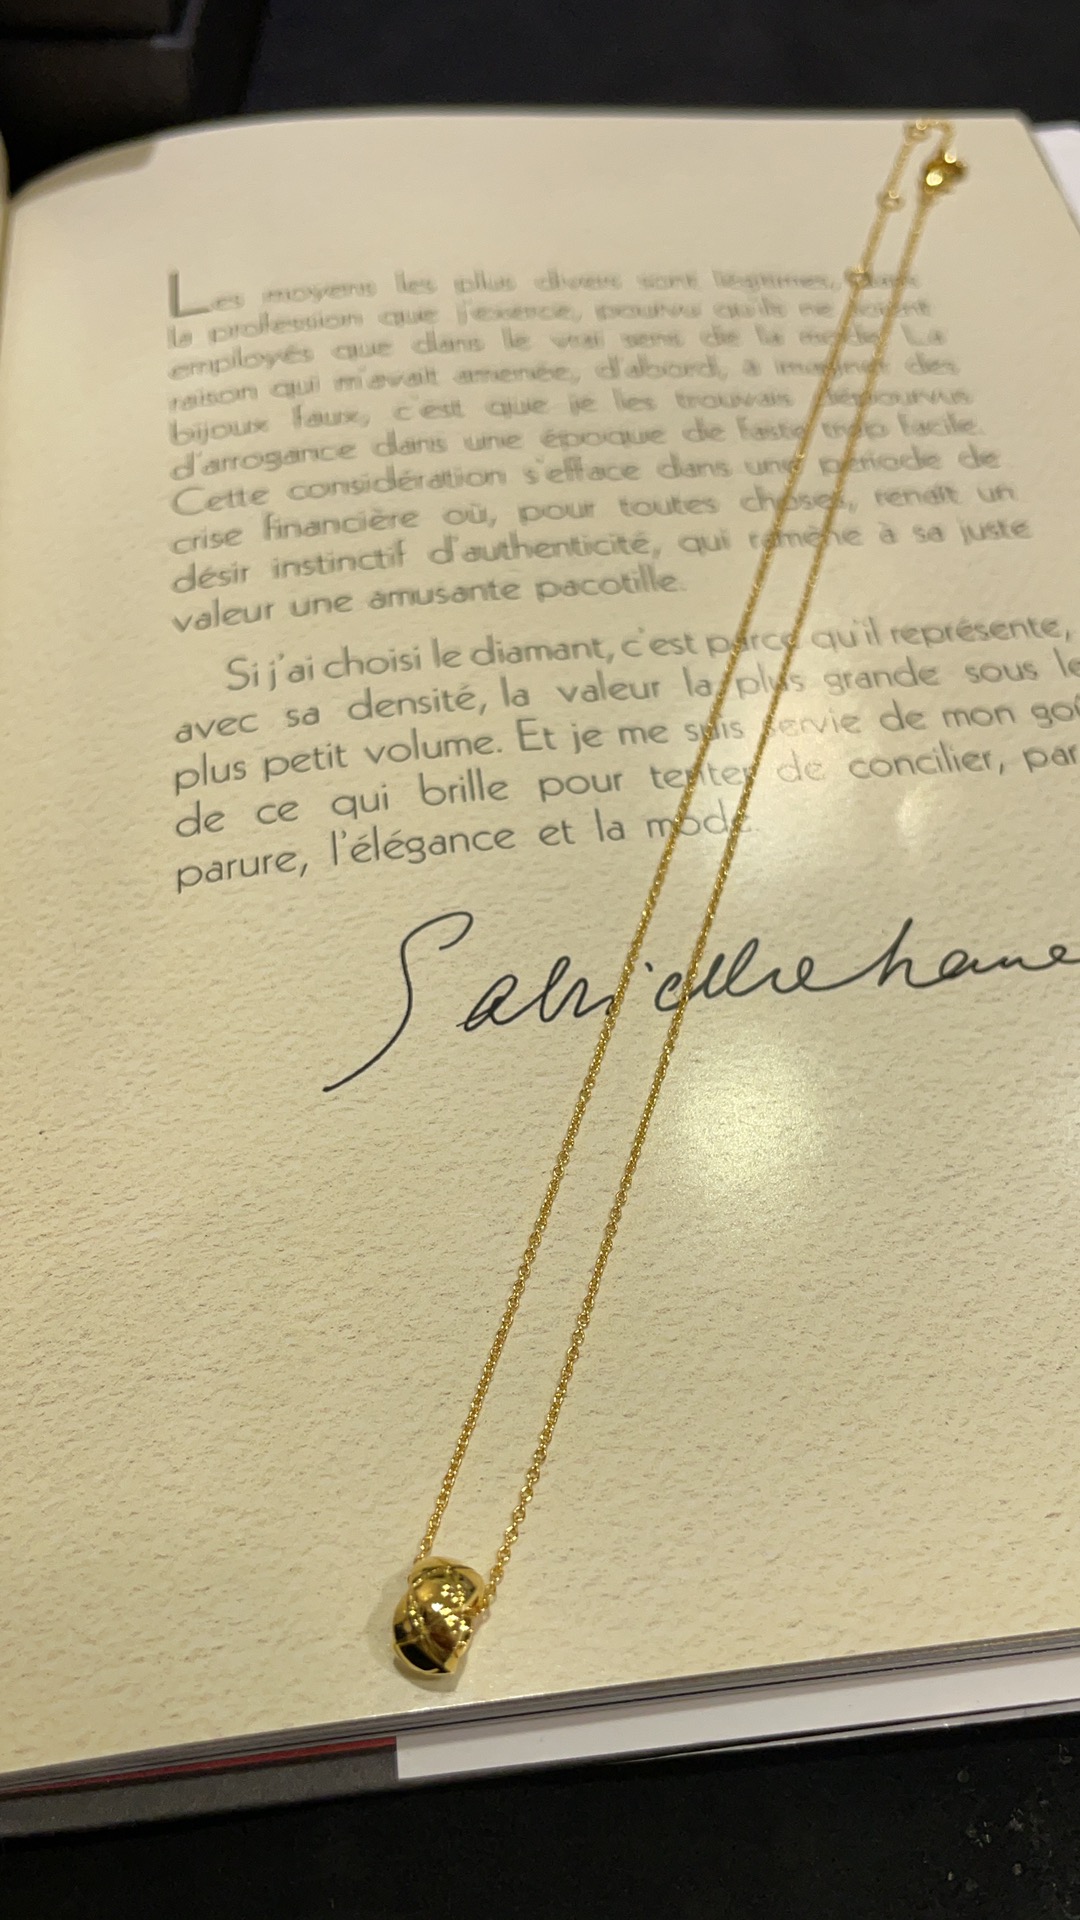 Les moyens les plus divers sont légitimes, dans
la profession que j'exerce, pourvu qu'ils ne soient
employés que dans le vrai sens de la mode. La
raison qui m'avait amenée, d'abord, à imaginer des
bijoux faux, c'est que je les trouvais dépourvus
d'arrogance dans une époque de faste trop facile.
Cette considération s'efface dans une période de
crise financière où, pour toutes choses, renaît un
désir instinctif d'authenticité, qui ramène à sa juste
valeur une amusante pacotille.
Si j'ai choisi le diamant, c'est parce qu'il représente,
avec sa densité, la valeur la plus grande sous le
plus petit volume. Et je me suis servie de mon goû
de ce qui brille pour tenter de concilier, par
parure, l'élégance et la mode.
Gabrielle Chane